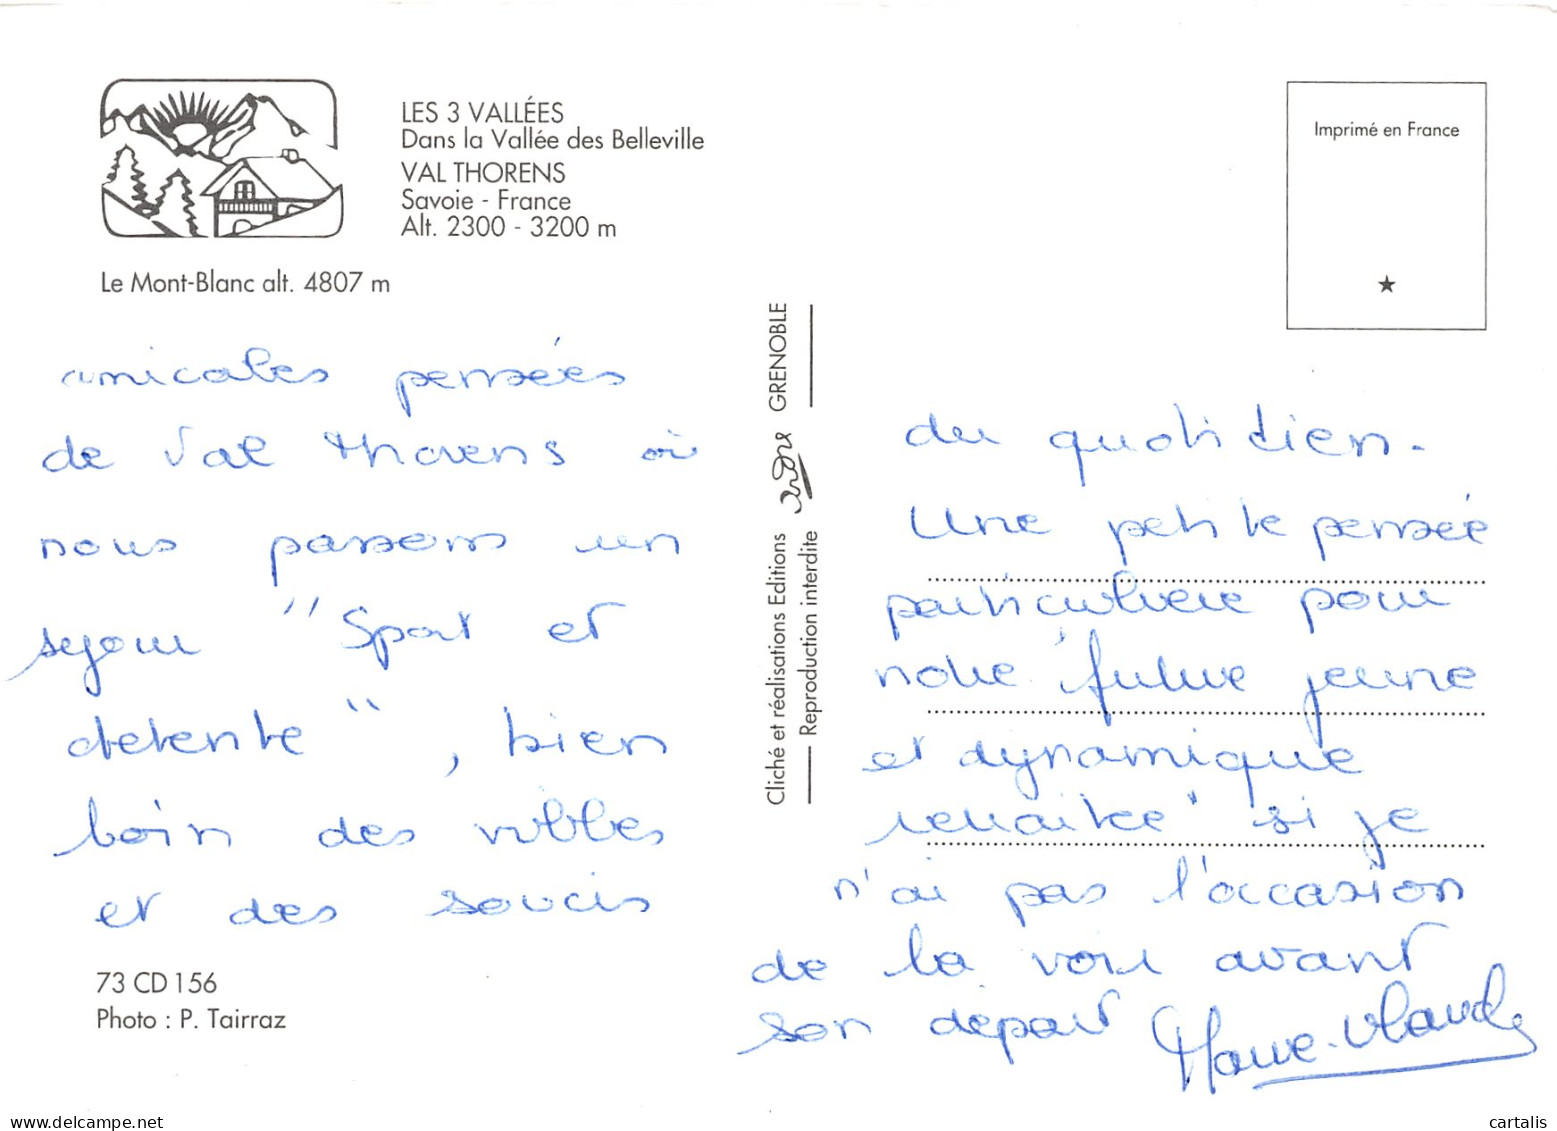 LES 3 VALLÉES
Dans la Vallée des Belleville
VAL THORENS
Savoie - France
Alt. 2300 - 3200 m
Le Mont-Blanc alt. 4807 m
Imprimé en France
amicales pensées
de Val Thorens où
nous passons un
sejour "Sport et
detente", bien
loin des villes
et des soucis
73 CD 156
Photo : P. Tairraz
Cliché et réalisations Editions GRENOBLE
Reproduction interdite
du quotidien.
Une petite pensée
particulière pour
notre "future jeune
et dynamique
retraitée" si je
n'ai pas l'occasion
de la voir avant
son départ
cartalis
delcampe.net